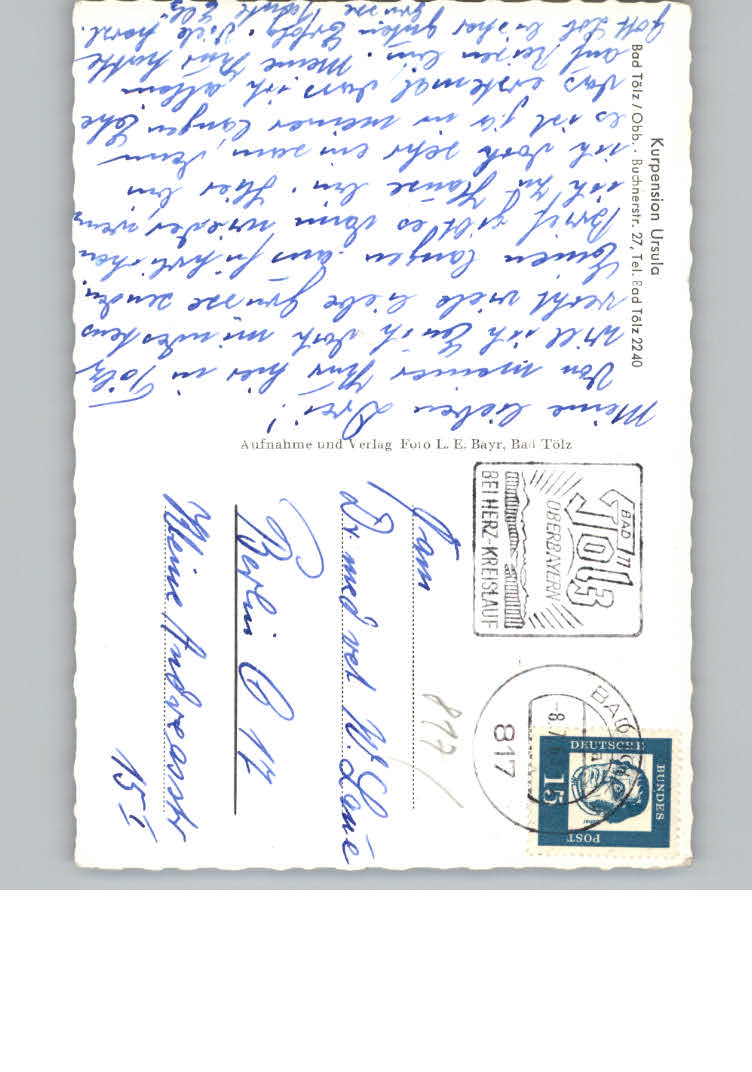 Kurpension Ursula
Bad Tölz / Obb. · Buchnerstr. 27, Tel. Bad Tölz 2240
Meine lieben Drei!
Von meiner Kur hier in Tölz
will ich Euch doch mindestens
recht viele liebe Grüsse senden.
Einen langen ausführlichen
Brief gibt es dann wieder, wenn
ich zu Hause bin. Hier bin
ich doch sehr einsam, denn
es ist ja in meiner langen Ehe
das erstemal, dass ich allein
auf Reisen bin. Meine Kur hatte
Gott Lob bisher guten Erfolg. Viele herzl.
Grüsse Tante Else
Aufnahme und Verlag Foto L. E. Bayr, Bad Tölz
BAD
Tölz
OBERBAYERN
BEI HERZ-KREISLAUF
817
BAD
-8.7.
DEUTSCHE
BUNDES
POST
15
817
Fam
Dr med vet W. Laue
Berlin O 17
Kleine Andreasstr
15 I